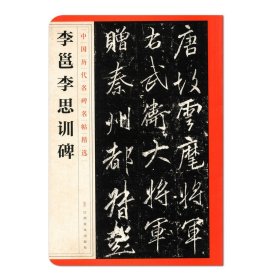 唐故雲麾將軍
右武衛大將軍
贈秦州都督
中国历代名碑名帖精选
李邕李思训碑